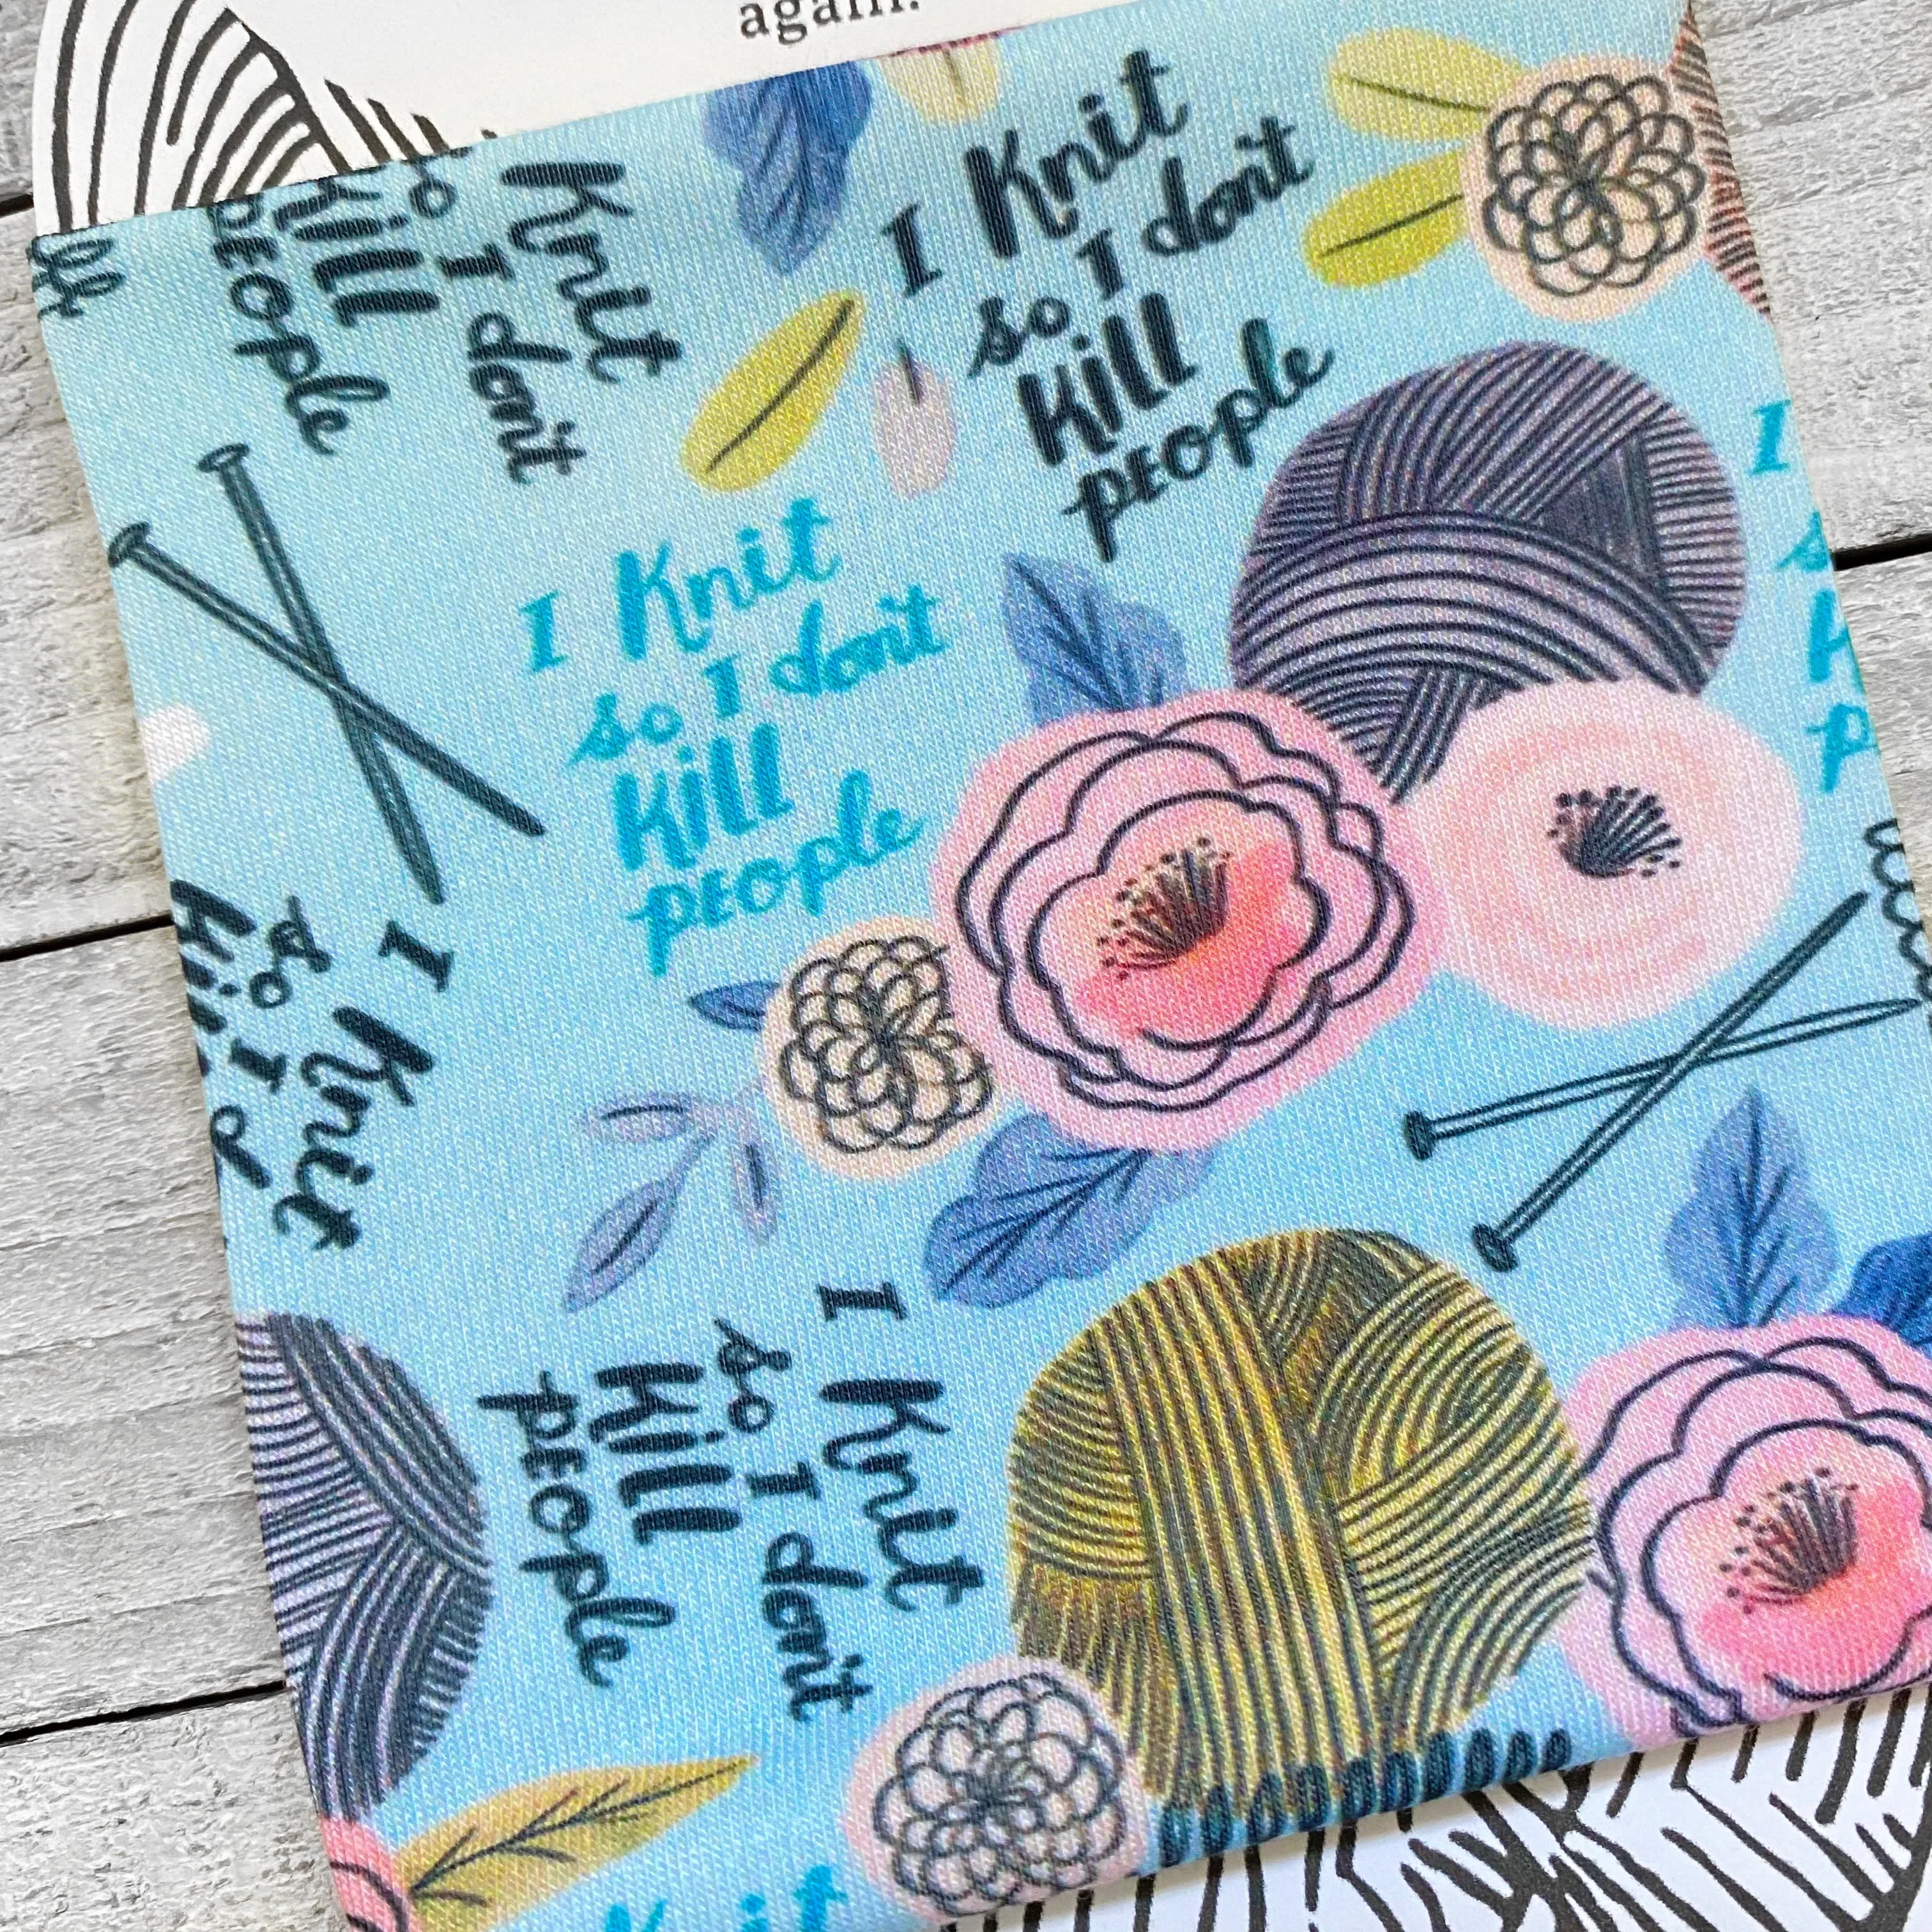 again.
Knit
so I don't
Kill
PEOPle
I Knit
so I don't
Kill
PEOPle
I Knit
so I don't
Kill
PEOPle
I
I Knit
so I d
Kill
I Knit
so I don't
Kill
PEOPle
Knit